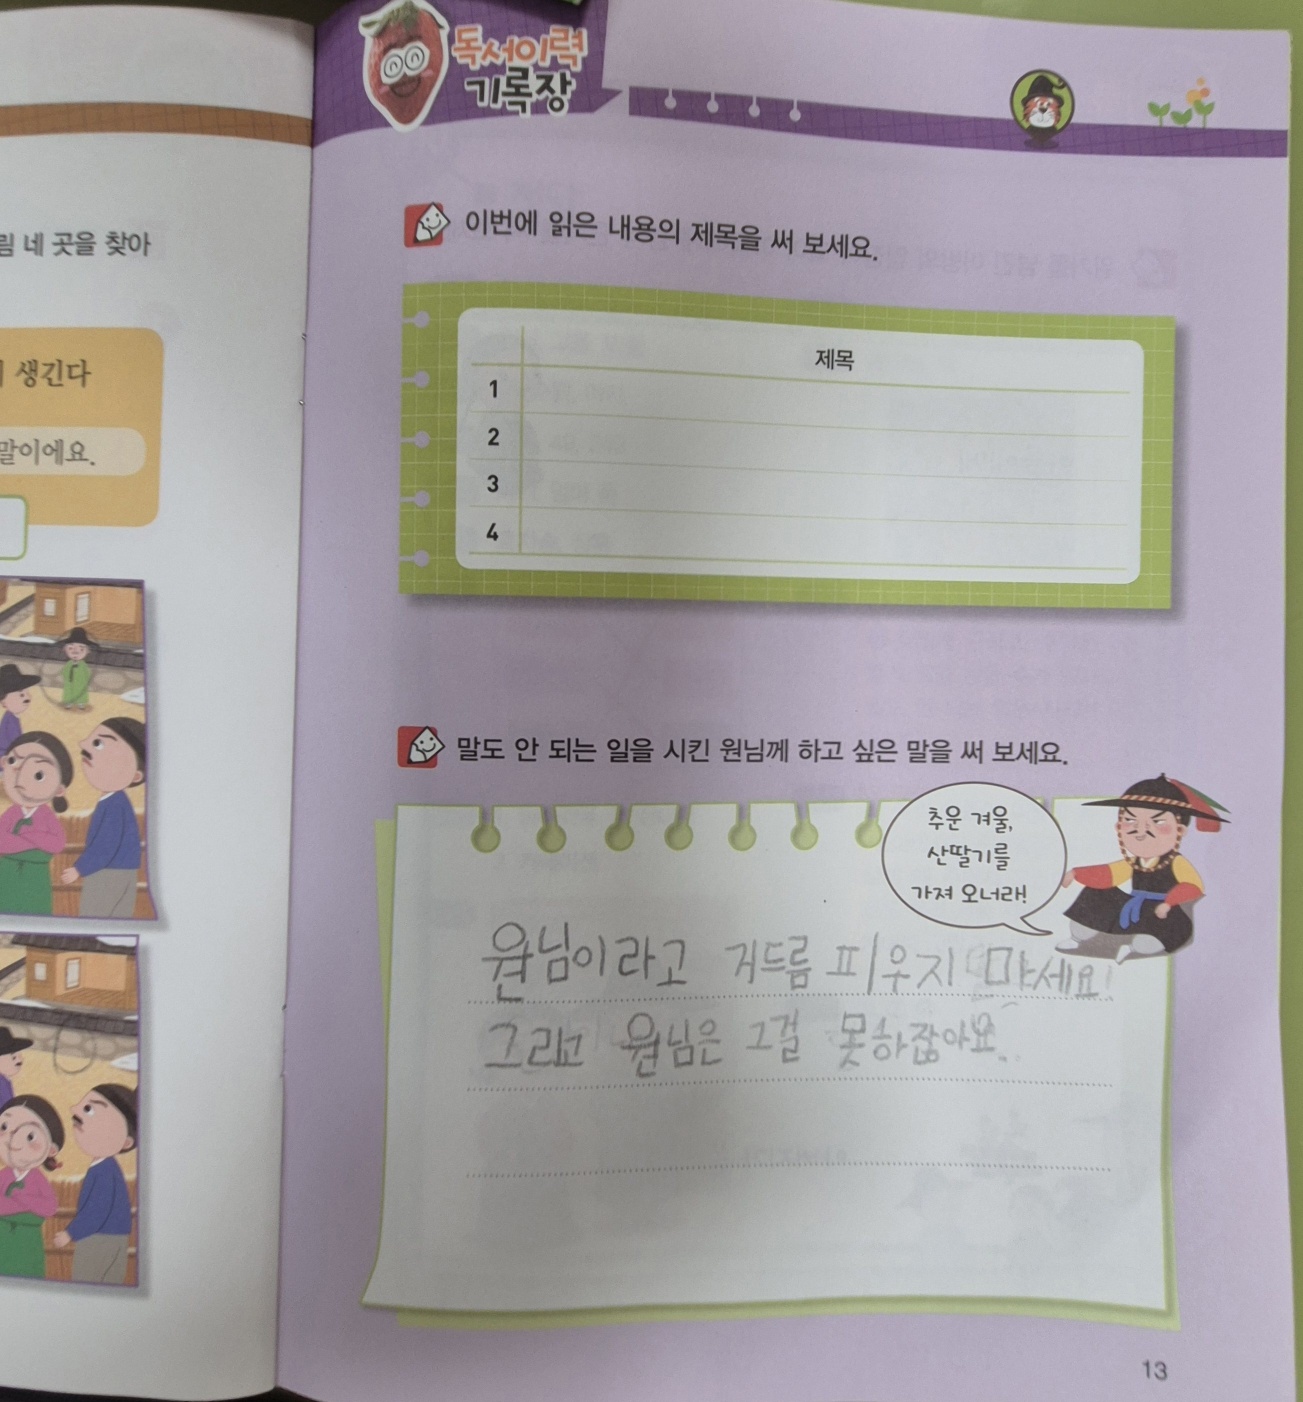 독서이력
기록장
림 네 곳을 찾아
생긴다
말이에요.
이번에 읽은 내용의 제목을 써 보세요.
제목
1
2
3
4
말도 안 되는 일을 시킨 원님께 하고 싶은 말을 써 보세요.
추운 겨울,
산딸기를
가져 오너라!
원님이라고 거드름 피우지 마세요!
그리고 원님은 그걸 못하잖아요.
13